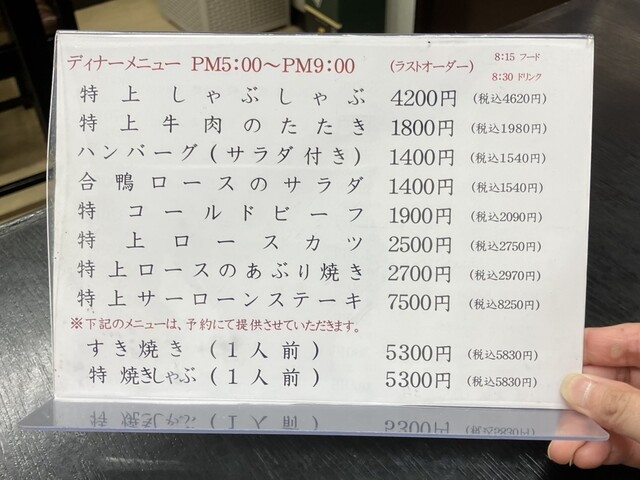 ディナーメニュー PM5:00～PM9:00 (ラストオーダー) 8:15 フード
8:30 ドリンク
特上しゃぶしゃぶ 4200円 (税込4620円)
特上牛肉のたたき 1800円 (税込1980円)
ハンバーグ(サラダ付き) 1400円 (税込1540円)
合鴨ロースのサラダ 1400円 (税込1540円)
特コールドビーフ 1900円 (税込2090円)
特上ロースカツ 2500円 (税込2750円)
特上ロースのあぶり焼き 2700円 (税込2970円)
特上サーロインステーキ 7500円 (税込8250円)
※下記のメニューは、予約にて提供させていただきます。
すき焼き(1人前) 5300円 (税込5830円)
特焼きしゃぶ(1人前) 5300円 (税込5830円)